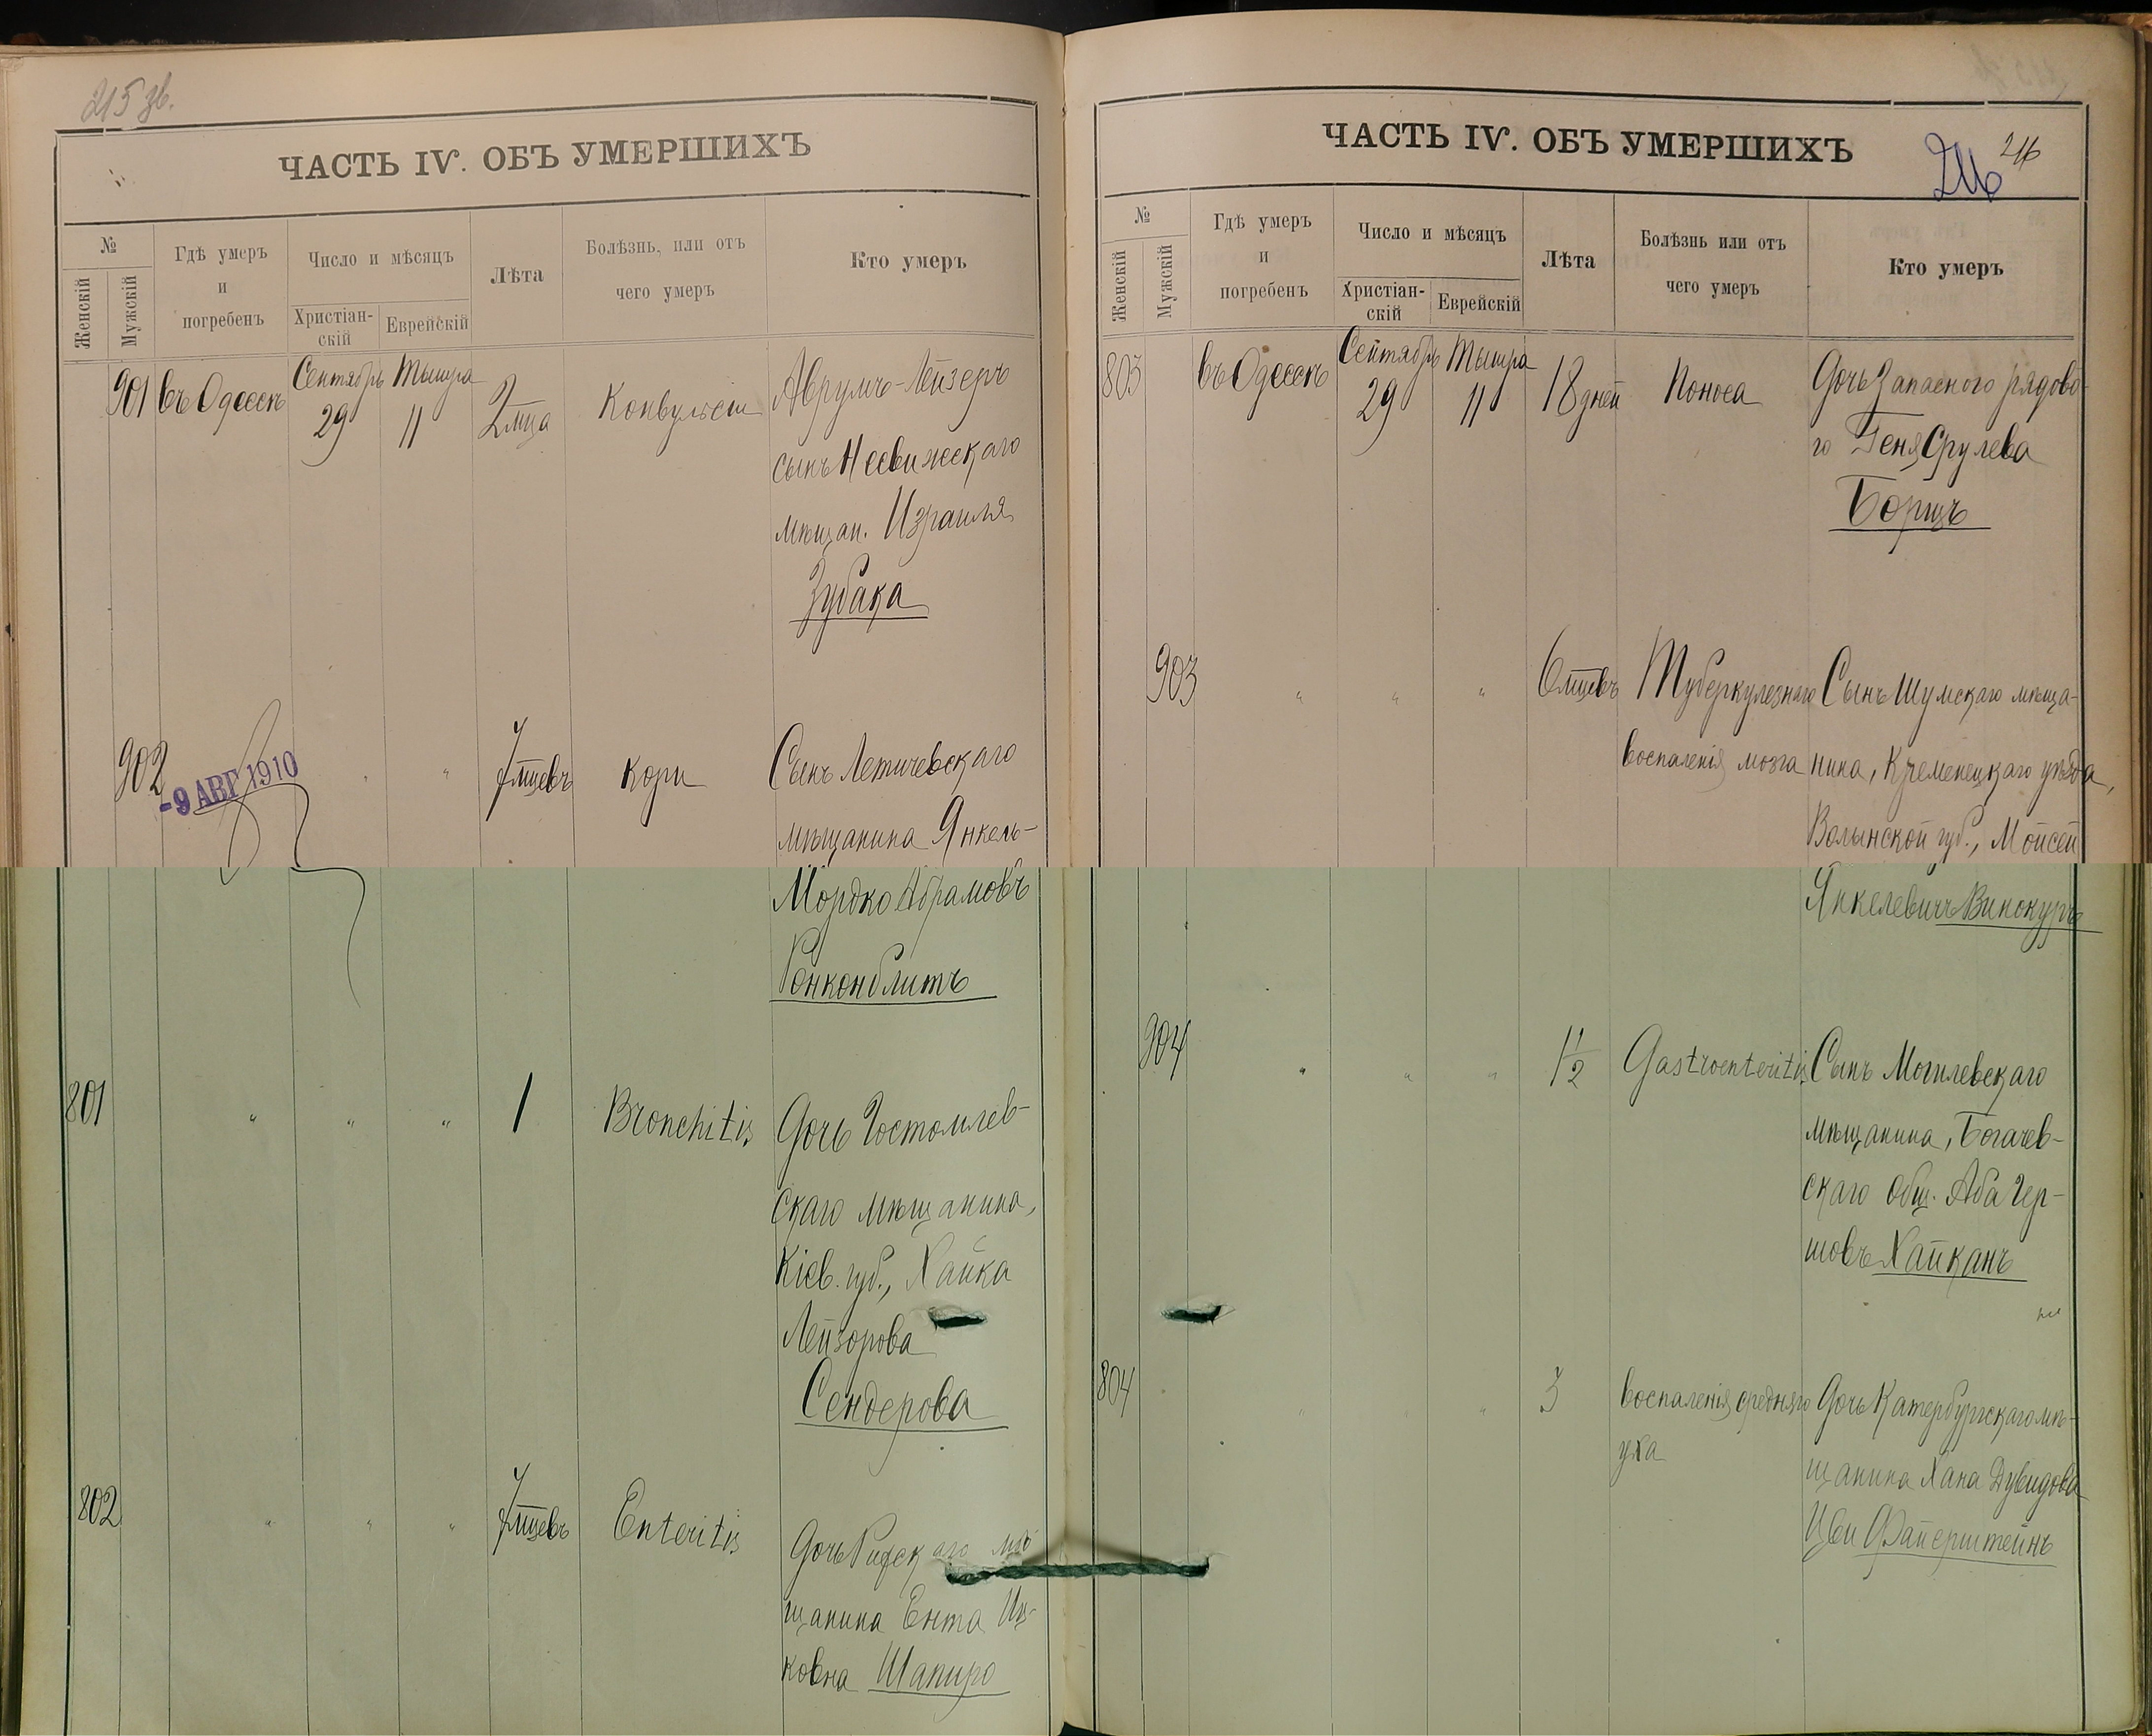 215 зв.
ЧАСТЬ IV. ОБЪ УМЕРШИХЪ
№
Женскій
Мужскій
Гдѣ умеръ
и
погребенъ
Число и мѣсяцъ
Христіан-
скій
Еврейскій
Лѣта
Болѣзнь, или отъ
чего умеръ
Кто умеръ
901 въ Одессѣ Сентябрь 29 Тышра 11 2 мца Конвульсіи Аврумъ-Лейзеръ
сынъ Несвижскаго
мѣщан. Израиля
Зубака
902 " " 7 мцевъ кори Сынъ Летичевскаго
-9 АВГ 1910
мѣщанина Янкель-
Мордко Абрамовъ
801 " " " 1 Bronchitis Дочь Гостомлев-
скаго мѣщанина,
Кіев. губ., Хайка
Лейзорова
Сендерова
802 " " " 7 мцевъ Enteritis Дочь мѣ
щанина Ента Иц-
ковна Шапиро
ЧАСТЬ IV. ОБЪ УМЕРШИХЪ
216
216
№
Женскій
Мужскій
Гдѣ умеръ
и
погребенъ
Число и мѣсяцъ
Христіан-
скій
Еврейскій
Лѣта
Болѣзнь или отъ
чего умеръ
Кто умеръ
803 въ Одессѣ Сентябрь 29 Тышра 11 18 дней Поноса Дочь Запасного рядово-
го Геня Срулева
Борщъ
903 " " " 6 мцевъ Туберкулезнаго Сынъ Шумскаго мѣща-
воспаленія мозга нина, Кременецкаго уѣзда,
Волынской губ., Мойсей
Янкелевичъ Винокуръ
904 " " " 1 1/2 Gastroenteritis Сынъ Могилевскаго
мѣщанина, Богачев-
скаго общ. Аба Гер-
шовъ Хайканъ
804 " " " 3 воспаленія средняго Дочь Катербургскаго мѣ-
уха щанина Хана Дувидова
Цви Файерштейнъ